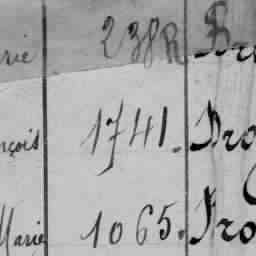 rie 238 R Bro
nçois 1741. Bro
Marie 1065. Bro